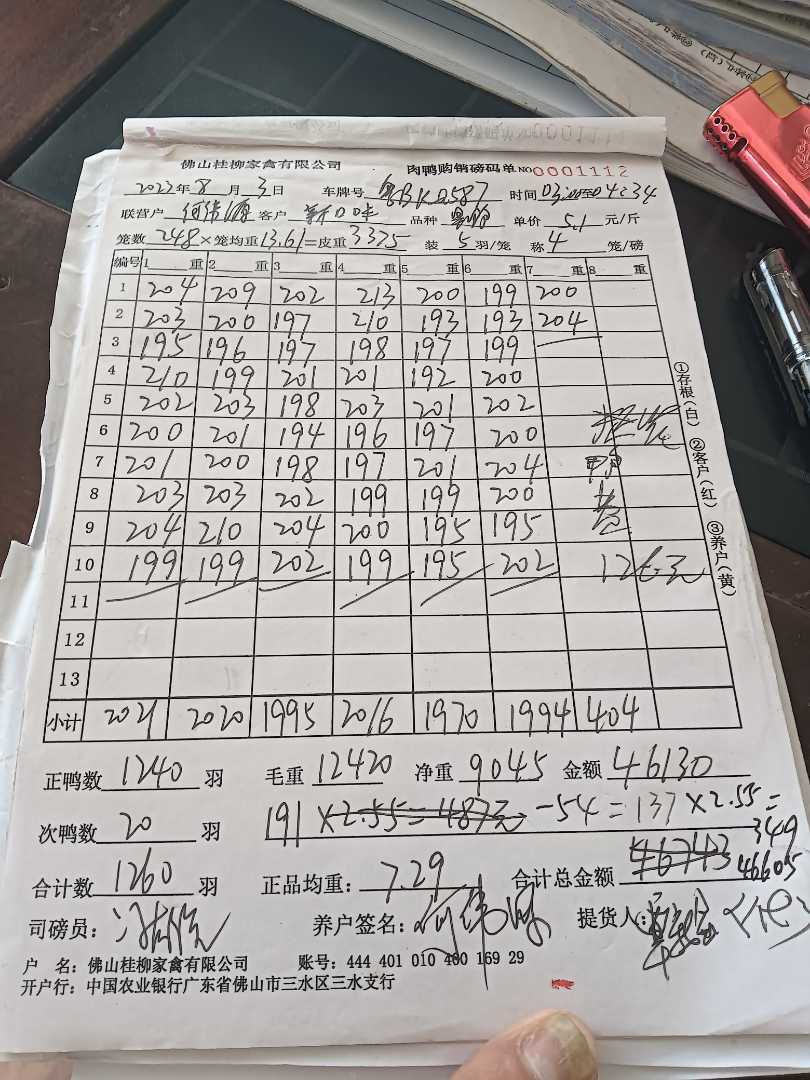 佛山桂柳家禽有限公司 肉鸭购销磅码单 NO 0001112
2023年 8 月 3 日 车牌号 粤BKQ587 时间 03:00至04:34
联营户 何伟源 客户 新口味 品种 单价 5.1 元/斤
笼数 248 ×笼均重 13.61 =皮重 3375 装 5 羽/笼 称 4 笼/磅
编号 1 重 2 重 3 重 4 重 5 重 6 重 7 重 8 重
1 204 209 202 213 200 199 200
2 203 200 197 210 193 193 204
3 195 196 197 198 197 199
4 210 199 201 201 192 200
5 202 203 198 203 201 202
6 200 201 194 196 197 200
7 201 200 198 197 201 204
8 203 203 202 199 199 200
9 204 210 204 200 195 195
10 199 199 202 199 195 202
11
12
13
小计 2021 2020 1995 2016 1970 1994 404
①存根(白) ②客户(红) ③养户(黄)
正鸭数 1240 羽 毛重 12420 净重 9045 金额 46130
次鸭数 20 羽 191 ×2.55=487元 -54=137×2.55=
349
合计数 1260 羽 正品均重: 7.29 合计总金额 46743 46605
司磅员: 养户签名: 何伟源 提货人:
户 名: 佛山桂柳家禽有限公司 账号: 444 401 010 400 169 29
开户行: 中国农业银行广东省佛山市三水区三水支行